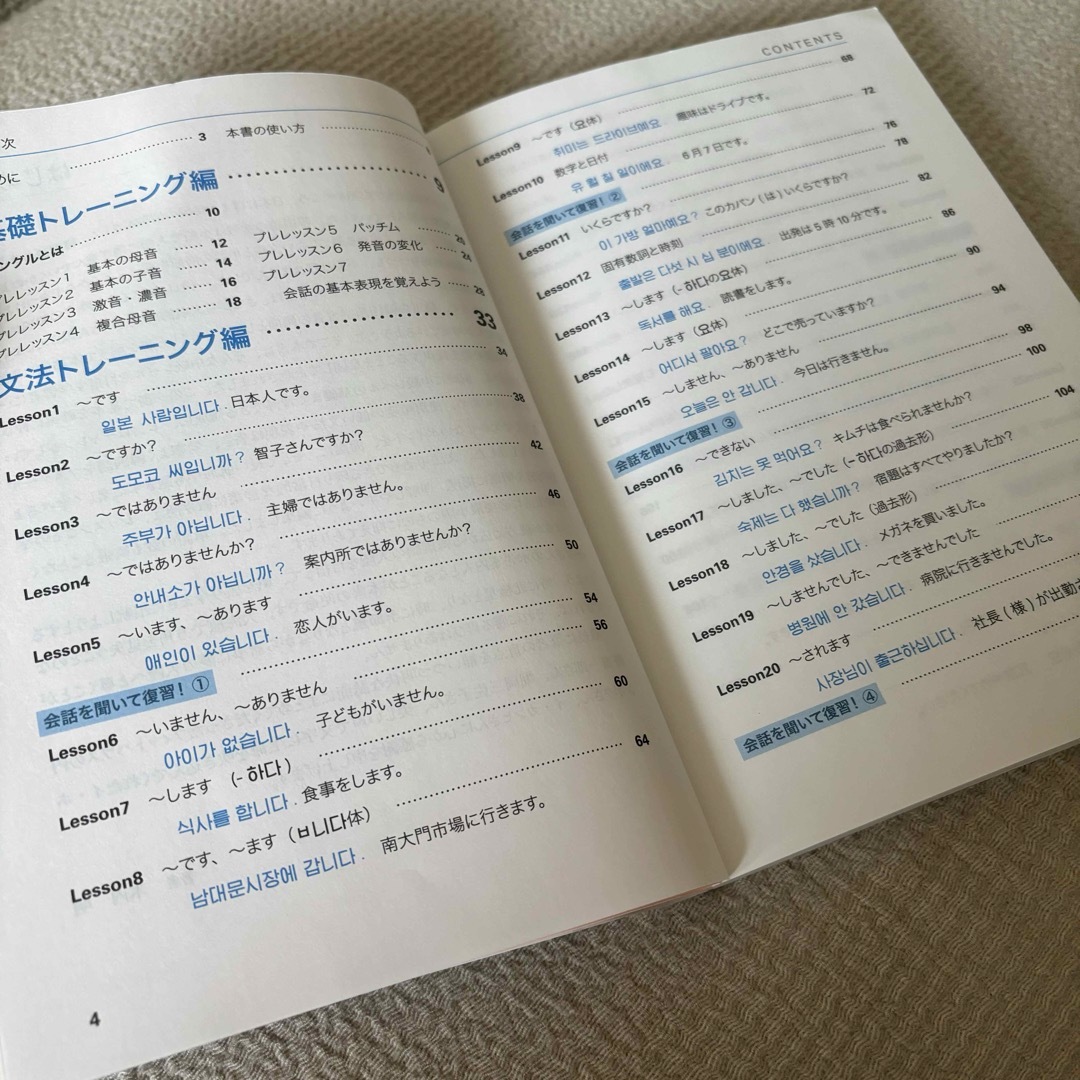 次
めに 3 本書の使い方
基礎トレーニング編 9
ングルとは 10
プレレッスン1 基本の母音 12
プレレッスン2 基本の子音 14
プレレッスン3 激音・濃音 16
プレレッスン4 複合母音 18
プレレッスン5 パッチム 20
プレレッスン6 発音の変化 24
プレレッスン7
会話の基本表現を覚えよう 28
文法トレーニング編 33
Lesson1 〜です 34
일본 사람입니다 . 日本人です。
Lesson2 〜ですか? 38
도모코 씨입니까 ? 智子さんですか?
Lesson3 〜ではありません 42
주부가 아닙니다 . 主婦ではありません。
Lesson4 〜ではありませんか? 46
안내소가 아닙니까 ? 案内所ではありませんか?
Lesson5 〜います、〜あります 50
애인이 있습니다 . 恋人がいます。
会話を聞いて復習! ① 54
Lesson6 〜いません、〜ありません 56
아이가 없습니다 . 子どもがいません。
Lesson7 〜します (- 하다 ) 60
식사를 합니다 . 食事をします。
Lesson8 〜です、〜ます (ㅂ니다体) 64
남대문시장에 갑니다 . 南大門市場に行きます。
4
CONTENTS
Lesson9 〜です (요体) 68
취미는 드라이브예요 . 趣味はドライブです。
Lesson10 数字と日付 72
유 월 칠 일이에요 . 6月7日です。
会話を聞いて復習! ② 76
Lesson11 いくらですか? 78
이 가방 얼마예요 ? このカバン ( は ) いくらですか?
Lesson12 固有数詞と時刻 82
출발은 다섯 시 십 분이에요 . 出発は5時10分です。
Lesson13 〜します (- 하다の요体) 86
독서를 해요 . 読書をします。
Lesson14 〜します (요体) 90
어디서 팔아요 ? どこで売っていますか?
Lesson15 〜しません、〜ありません 94
오늘은 안 갑니다 . 今日は行きません。
会話を聞いて復習! ③ 98
Lesson16 〜できない 100
김치는 못 먹어요 ? キムチは食べられませんか?
Lesson17 〜しました、〜でした (- 하다の過去形) 104
숙제는 다 했습니까 ? 宿題はすべてやりましたか?
Lesson18 〜しました、〜でした (過去形)
안경을 샀습니다 . メガネを買いました。
Lesson19 〜しませんでした、〜できませんでした
병원에 안 갔습니다 . 病院に行きませんでした。
Lesson20 〜されます
사장님이 출근하십니다 . 社長 ( 様 ) が出勤
会話を聞いて復習! ④